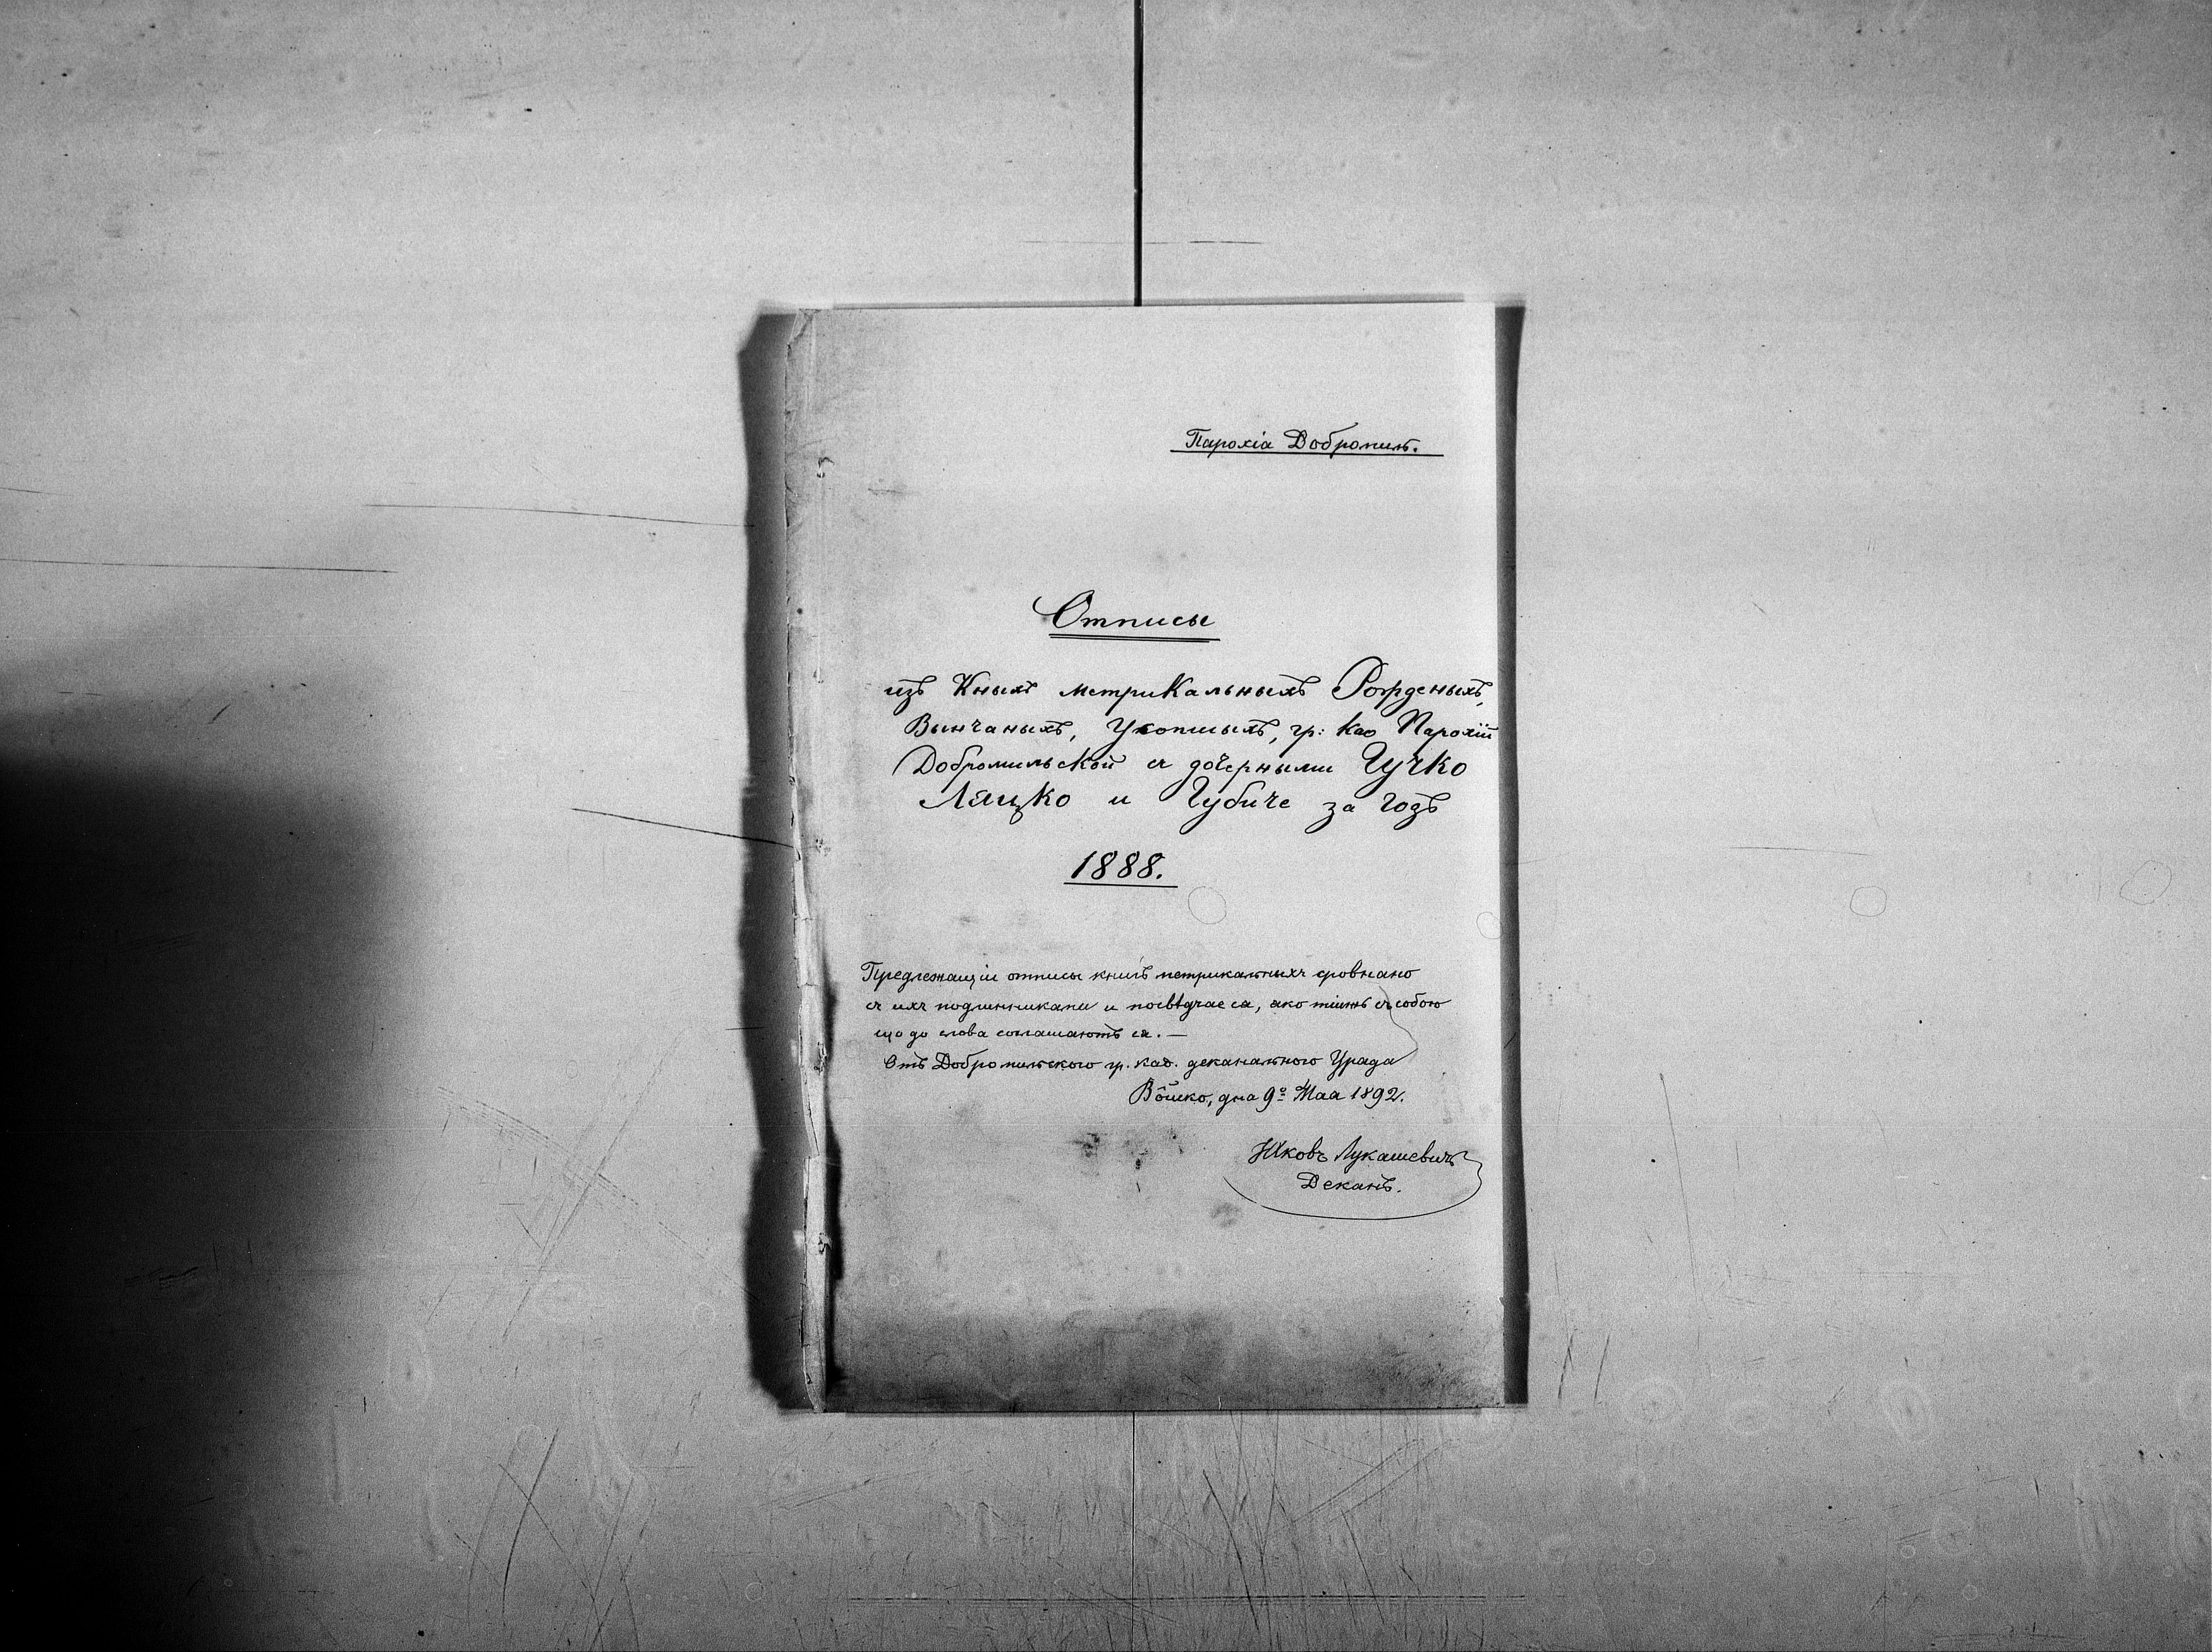 Парохіа Добромиль.
Отписы
изъ Кныхъ метрикальныхъ Рожденыхъ,
Вынчаныхъ, Укопшыхъ, гр: као Парохій
Добромильской съ дочерными Гучко
Ляцко и Губиче за годъ
1888.
Предлежащіи отписы книгъ метрикальныхъ сровнано
съ ихъ подлинниками и посвѣдчае са, ако тіижъ съ собою
що до слова соглашаютъ са. —
Отъ Добромильского гр. каѳ. деканального Урада
Вôйско, дна 9º Маа 1892.
Іаковъ Лукашевичъ
Деканъ.